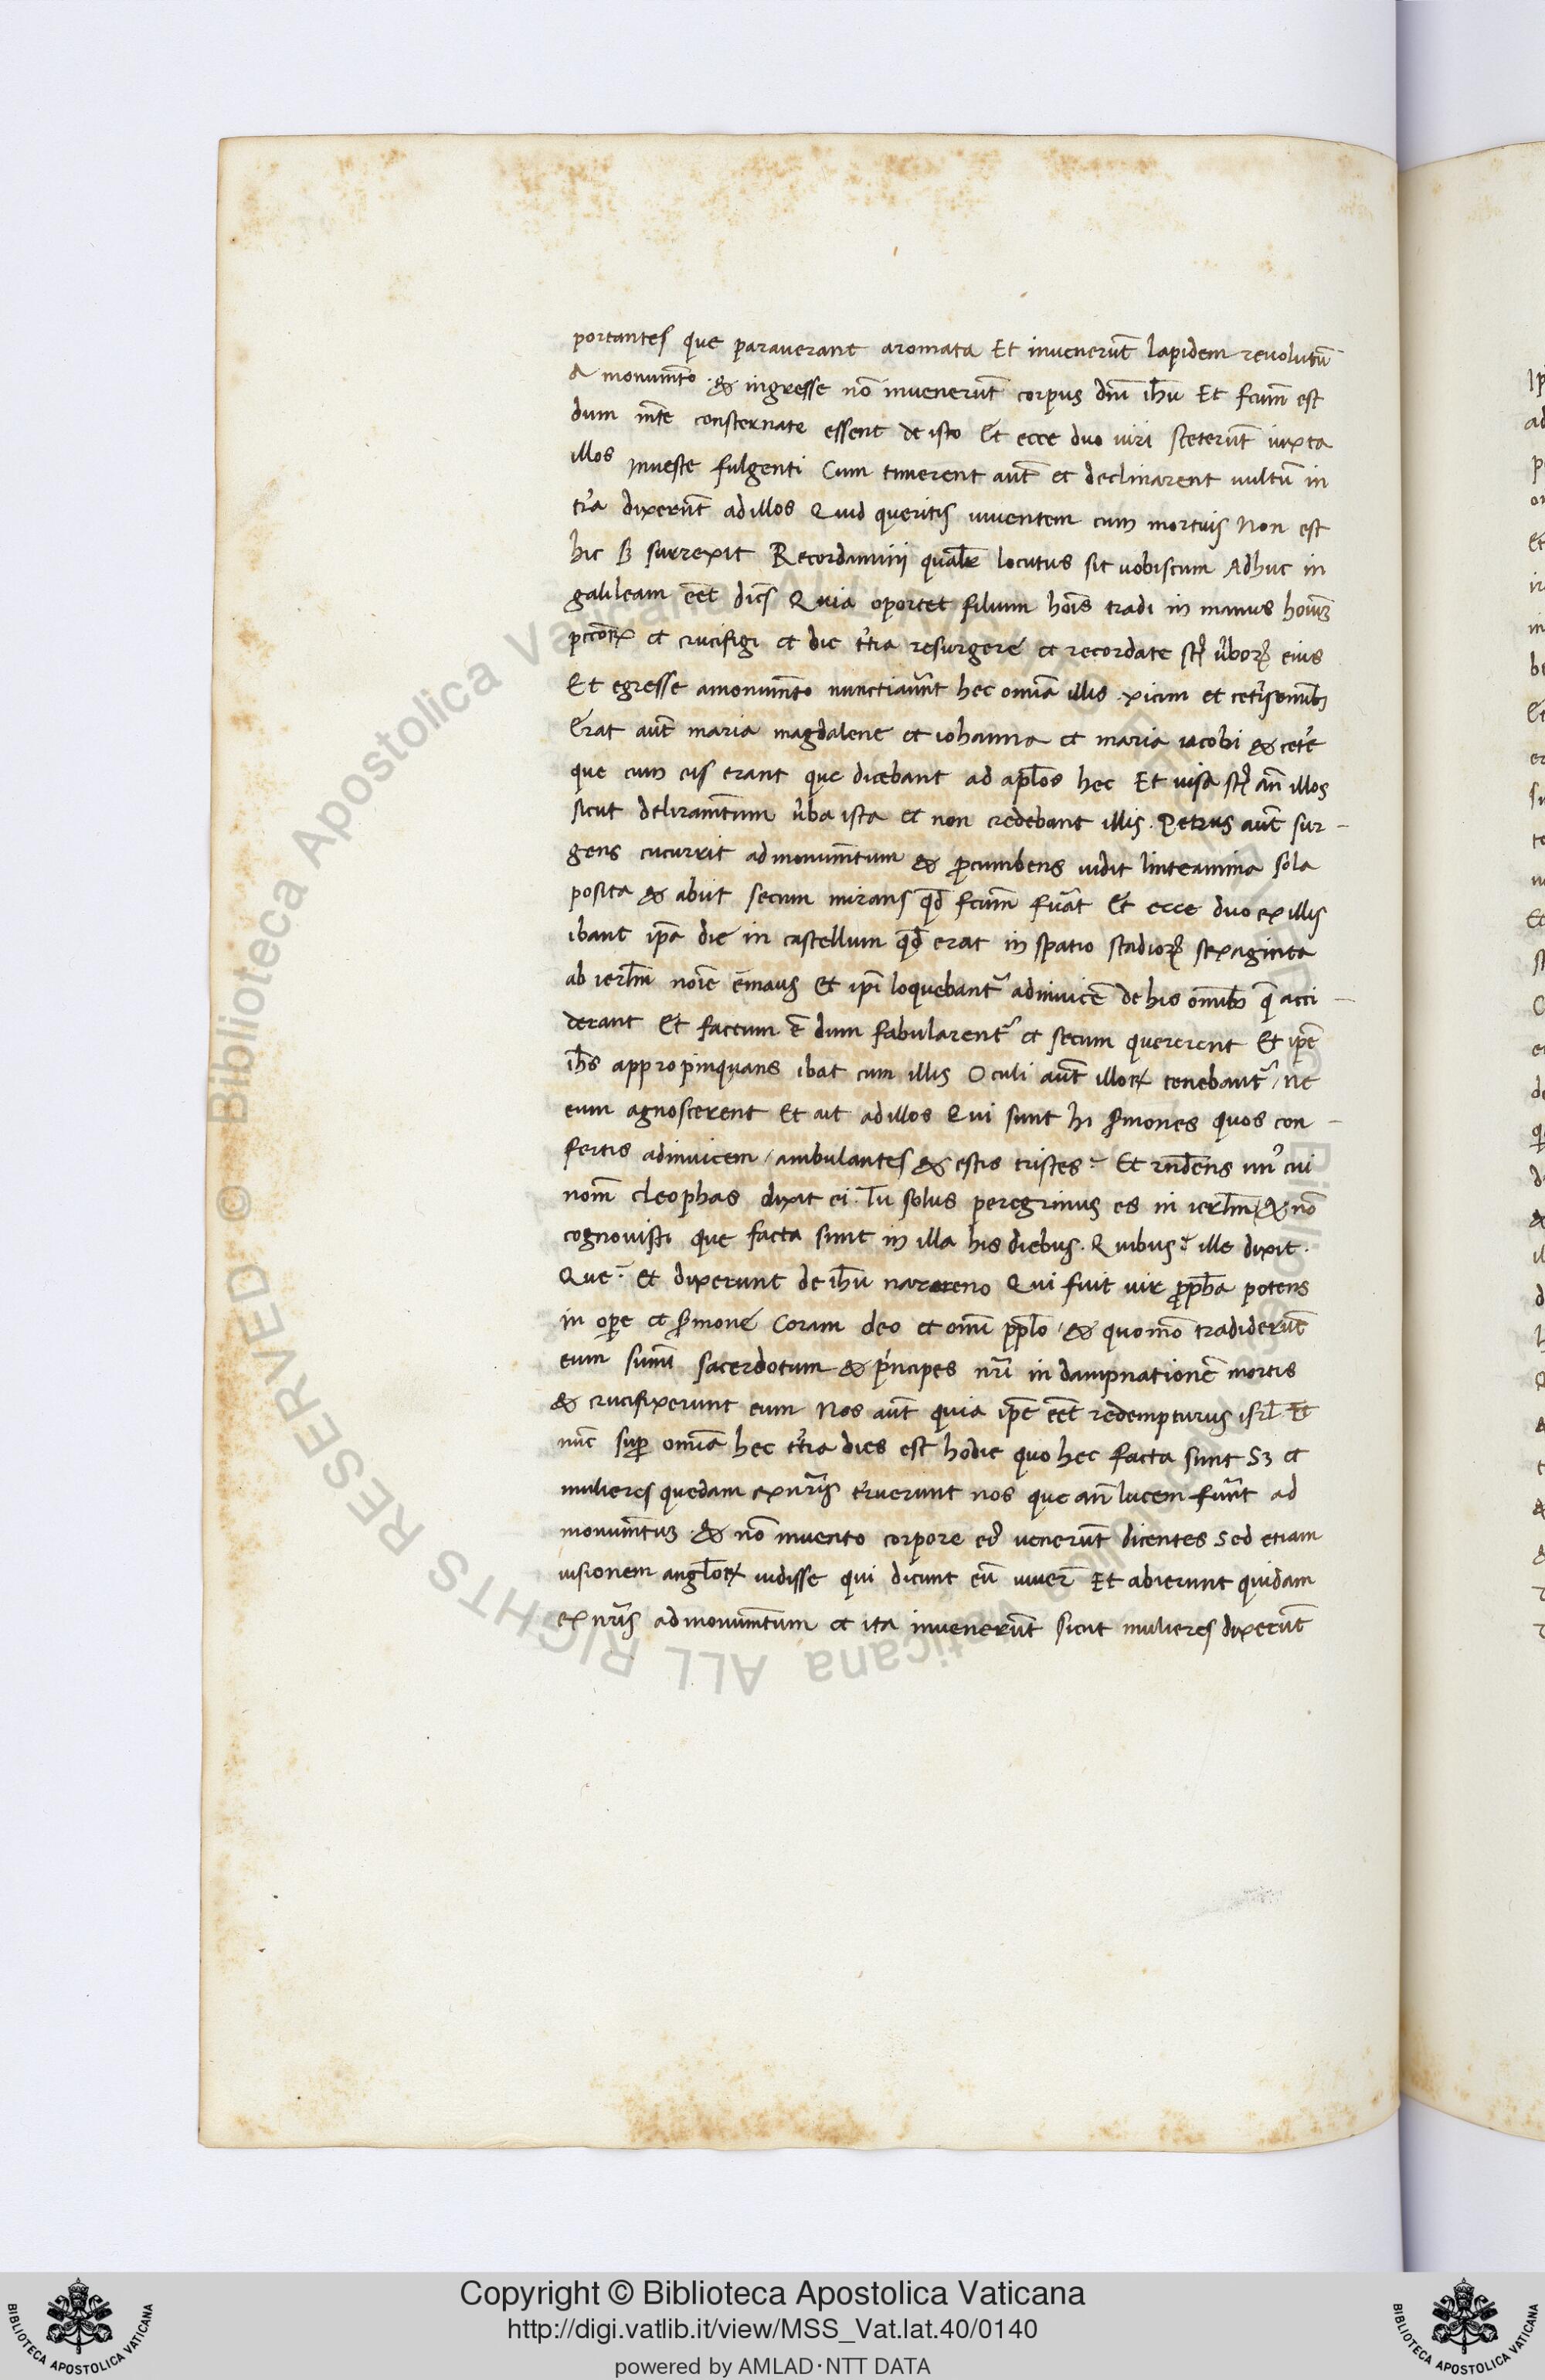 portantes que parauerant aromata Et inuenerūt lapidem reuolutū
a monumēto · & ingresse nō inuenerūt corpus dn̄i ih̄u Et fc̄um est
dum mēte consternate essent de isto Et ecce duo uiri steterūt iuxta
illos inueste fulgenti Cum timerent aut̄ et declinarent uultū in
tr̄a dixerūt ad illos Quid queritis uiuentem cum mortuis Non est
hic ß surrexit Recordamini qualr̄ locutus sit uobiscum Adhuc in
galileam eēt dic̄s Quia oportet filium hoīs tradi in manus hoīuꝫ
pcc̄oꝝ et crucifigi et die tʼtia resurgere et recordate st̄ ūboꝝ eius
Et egresse amonumēto nunctiauer̄t hec omīa illis xicim et cetʼisomībꝫ
Erat aut̄ maria magdalene et iohanna et maria iacobi & cetʼe
que cum eis erant que dicebant ad apl̄os hec Et uisa st̄ an̄ illos
sicut deliramētum ūba ista et non credebant illis. Petrus aut̄ sur-
gens cucurrit ad monumētum & ꝓcumbens uidit linteamina sola
posita & abiit secum mirans qd̄ fc̄um fuāt Et ecce duo ex illis
ibant ip̄a die in castellum qd̄ erat in spatio stadioꝝ sexaginta
ab ierl̄m noīe ēmaus Et ip̄i loquebant᷑ adinuicē de his omībꝫ q̄ acci-
derant Et factum ē dum fabularent᷑ et secum quererent Et ip̄e
ih̄s appropinquans ibat cum illis Oculi aut̄ illoꝝ tenebant᷑ / ne
eum agnoscerent Et ait ad illos Qui sunt hi s̄mones quos con-
fertis adinuicem / ambulantes & estis tristes? Et rn̄dens unʼ cui
nom̄ cleophas dixit ei. Tu solus peregrinus es in ierl̄m / & nō
cognouisti que facta sunt in illa his diebus. Quibus? ille dixit.
Que? Et dixerunt de ih̄u nazareno Qui fuit uir ꝓph̄a potens
in oꝑe et s̄mone Coram deo et omī ppl̄o / & quomō tradiderūt
eum sum̄i sacerdotum & pʼncipes nr̄i in dampnationē mortis
& crucifixerunt eum Nos aut̄ quia ip̄e eēt redempturus isrl̄ Et
nūc suꝑ omīa hec tʼtia dies est hodie quo hec facta sunt Sꝫ et
mulieres quedam ex nr̄is tʼruerunt nos que an̄ lucem fuer̄t ad
monumētuꝫ & nō inuento corpore eiʼ uenerūt dicentes Sed etiam
uisionem angl̄oꝝ uidisse qui dicunt eū uiuer̄ Et abierunt quidam
ex nr̄is ad monumētum et ita inuenerūt sicut mulieres dixerūt
Copyright © Biblioteca Apostolica Vaticana
http://digi.vatlib.it/view/MSS_Vat.lat.40/0140
powered by AMLAD·NTT DATA